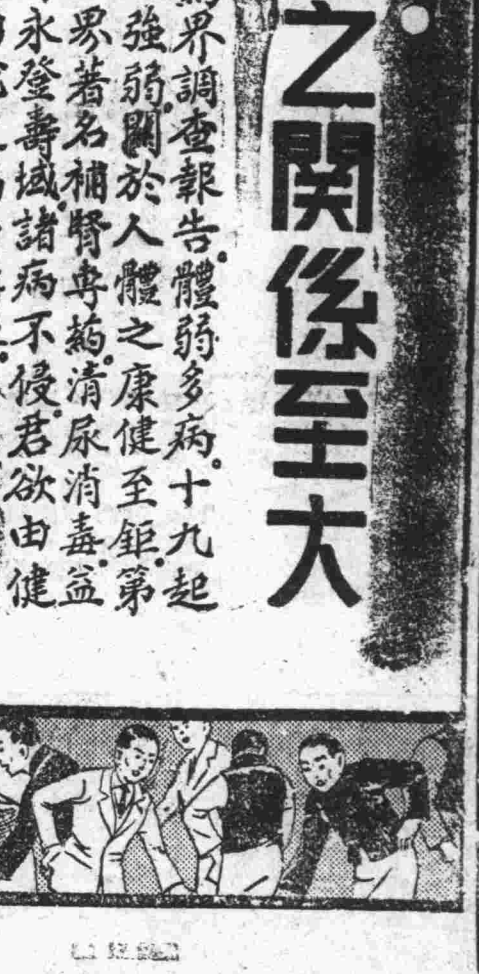 之関係至大
界調查報告。體弱多病。十九起
強弱。關於人體之康健至鉅。第
界著名補腎專葯。清尿消毒。益
永登壽域。諸病不侵。君欲由健